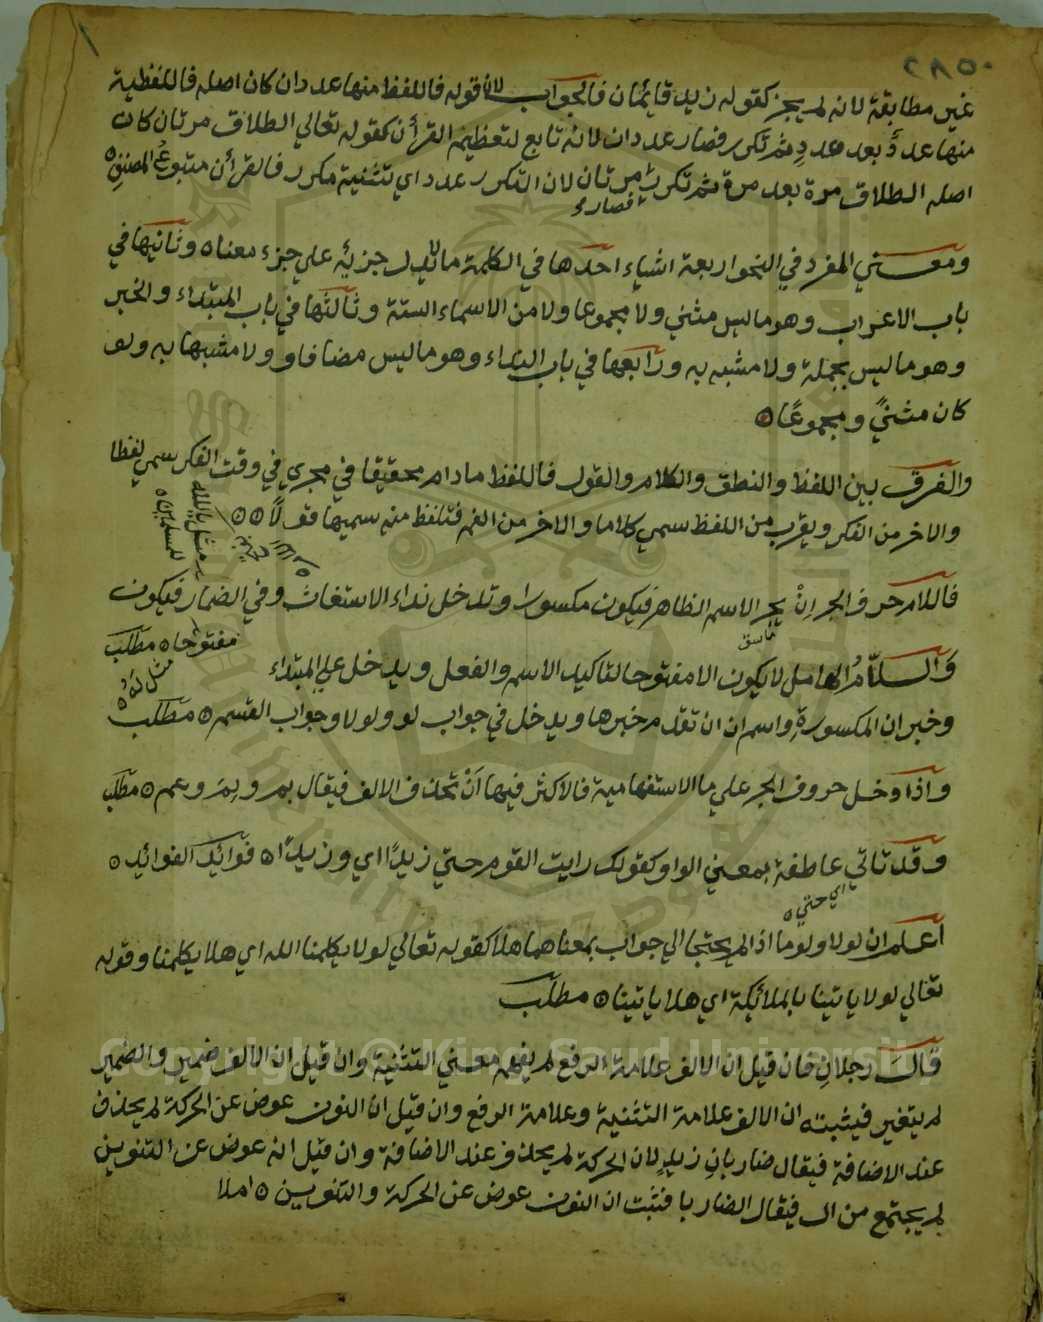 ٥٨٥٠
غير مطابقة لانه لم يجز كقوله زيد قايمان فالجواب لان قوله فاللفظ منها عددان كان اصله فاللفظية
منها عددٌ بعد عددٍ ثم تكرر فصار عددان لانه تابع لتعظيم القرأن كقوله تعالي الطلاق مرتان كان
اصله الطلاق مرة بعد مرة ثم تكرر مرتان لان التكرر عدد اي تثنية مكرر فالقرأن متبوع المصنف
فصار
ومعني المفرد في النحو اربعة اشياء احدها في الكلمة ما لا يدل جزيه علي جزء معناه وثانيها في
باب الاعراب وهو ما ليس مثني ولا مجموعا ولا من الاسماء الستة وثالثها في باب المبتداء والخبر
وهو ما ليس بجملة ولا مشبه به ورابعها في باب النداء وهو ما ليس مضافا و ولا مشبها به ولو
كان مثنيً ومجموعًا
والفرق بين اللفظ والنطق والكلام والقول فاللفظ مادام محقيقا في مجري في وقت الفكر سمي لفظا
والاخر من الفكر ويقرب من اللفظ سمي كلاما والاخر من الفم فتلفظ منه سميها قولاً
فاللام حرف الجر اِنْ يجر الاسم الظاهر فيكون مكسورا وتدخل نداء الاستغاث وفي الضمار فيكون
مفتوحا مطلب
مثل يالله للمسلمين
وَاللّامُ العامل لا يكون الا مفتوحا لتاكيد الاسم والفعل ويدخل علي المبتداء
مثل له
وخبر ان المكسورة واسم ان ان تقدم خبرها ويدخل في جواب لو ولولا وجواب القسم مطلب
واذا دخل حروف الجر علي ما الاستفهامية فالاكثر فيها اَنْ تحذف الالف فيقال بم ولِمَ وعم مطلب
وقد تاتي عاطفة بمعني الواو كقولك رايت القوم حتي زيدًا اي وزيدًا فوائد الفوائد
اي حتي
اعلم ان لولا ولوما اذا لم يحتجا الي جواب بمعناهما هلا كقوله تعالي لولا يكلمنا الله اي هلا يكلمنا وقوله
تعالي لولا ياتينا بالملائكة اي هلا ياتينا مطلب
قالَ رجلانِ فان قيل ان الالف علامة الرفع لم يفهم معني التثنية وان قيل ان الالف ضمير والضمير
لم يتغير فيثبته ان الالف علامة التثنية وعلامة الرفع وان قيل ان النون عوض عن الحركة لم يحذف
عند الاضافة فيقال ضاربانِ زيدٍ لان الحركة لم يحذف عند الاضافة وان قيل انه عوض عن التنوين
لم يجتمع من ال فيقال الضاربا فثبت ان النون عوض عن الحركة والتنوين املا
Copyright © King Saud University